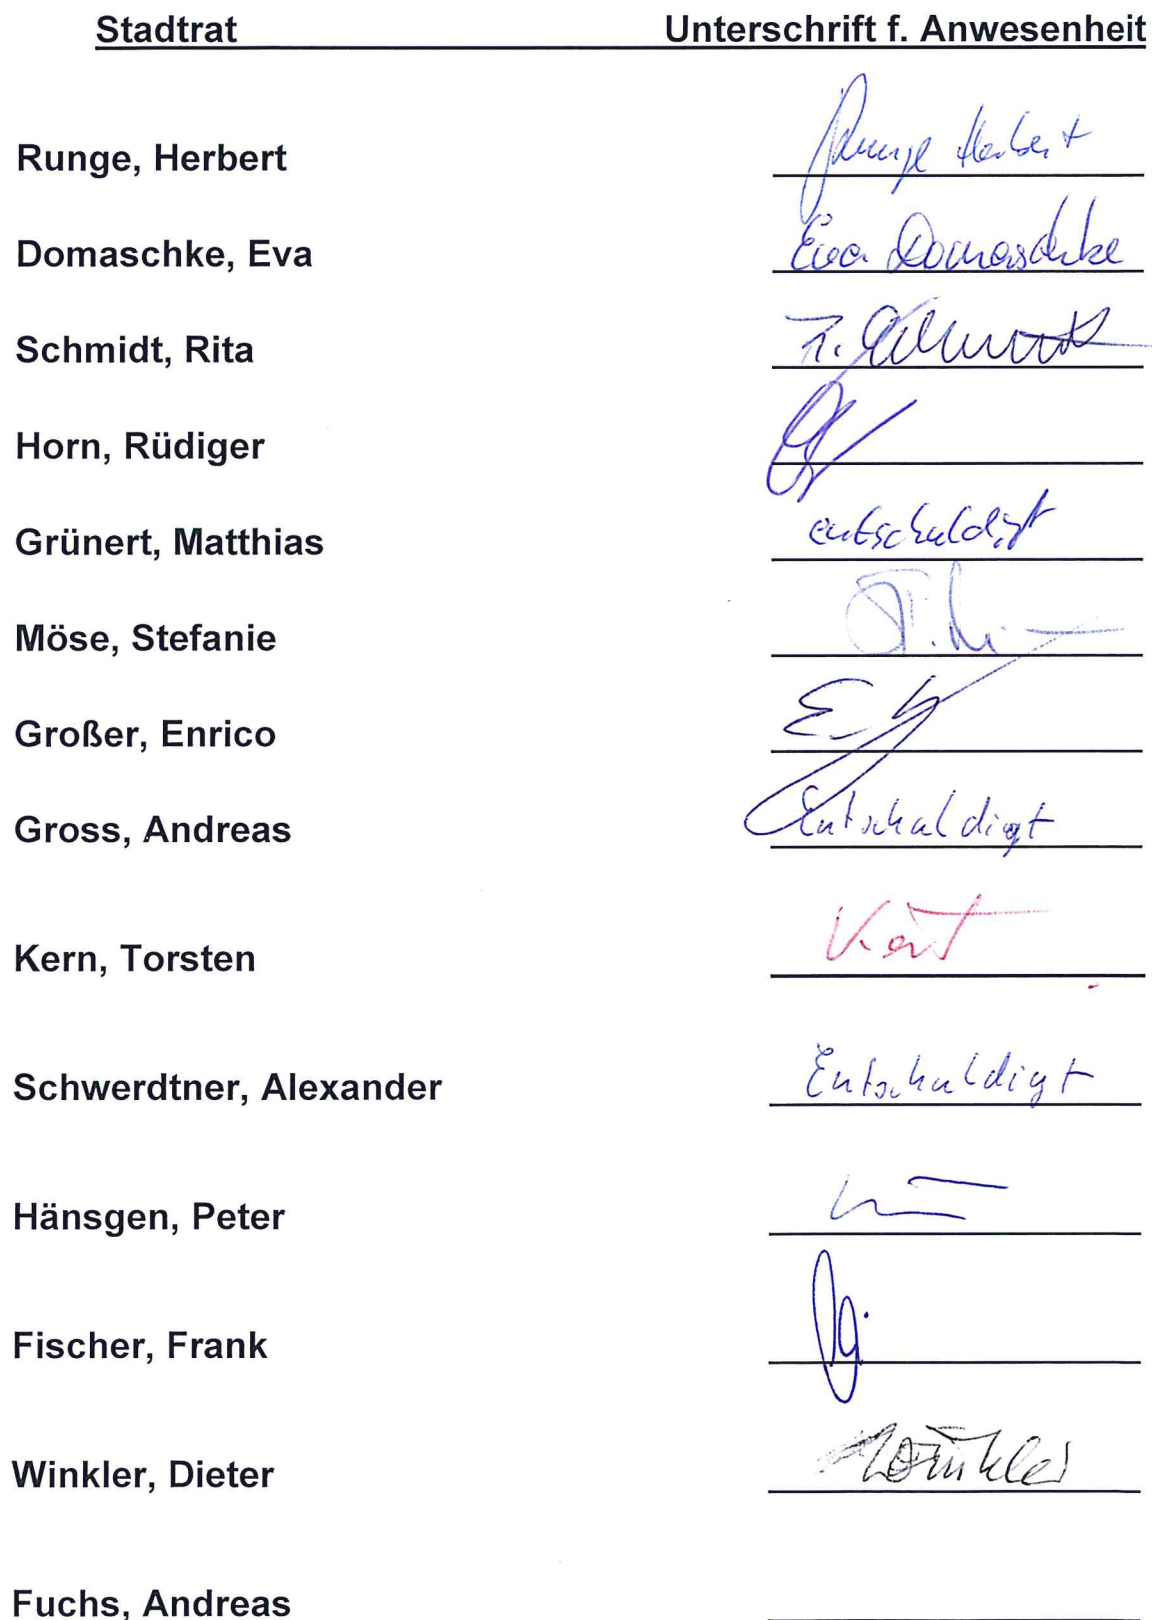 Stadtrat Unterschrift f. Anwesenheit
Runge, Herbert Runge Herbert
Domaschke, Eva Eva Domaschke
Schmidt, Rita R. Schmidt
Horn, Rüdiger
Grünert, Matthias entschuldigt
Möse, Stefanie
Großer, Enrico
Gross, Andreas Entschuldigt
Kern, Torsten
Schwerdtner, Alexander Entschuldigt
Hänsgen, Peter
Fischer, Frank
Winkler, Dieter Winkler
Fuchs, Andreas